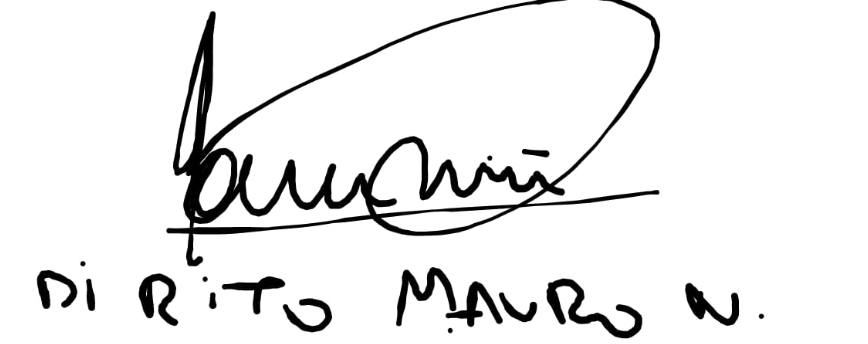 Di RiTO MAURO N.